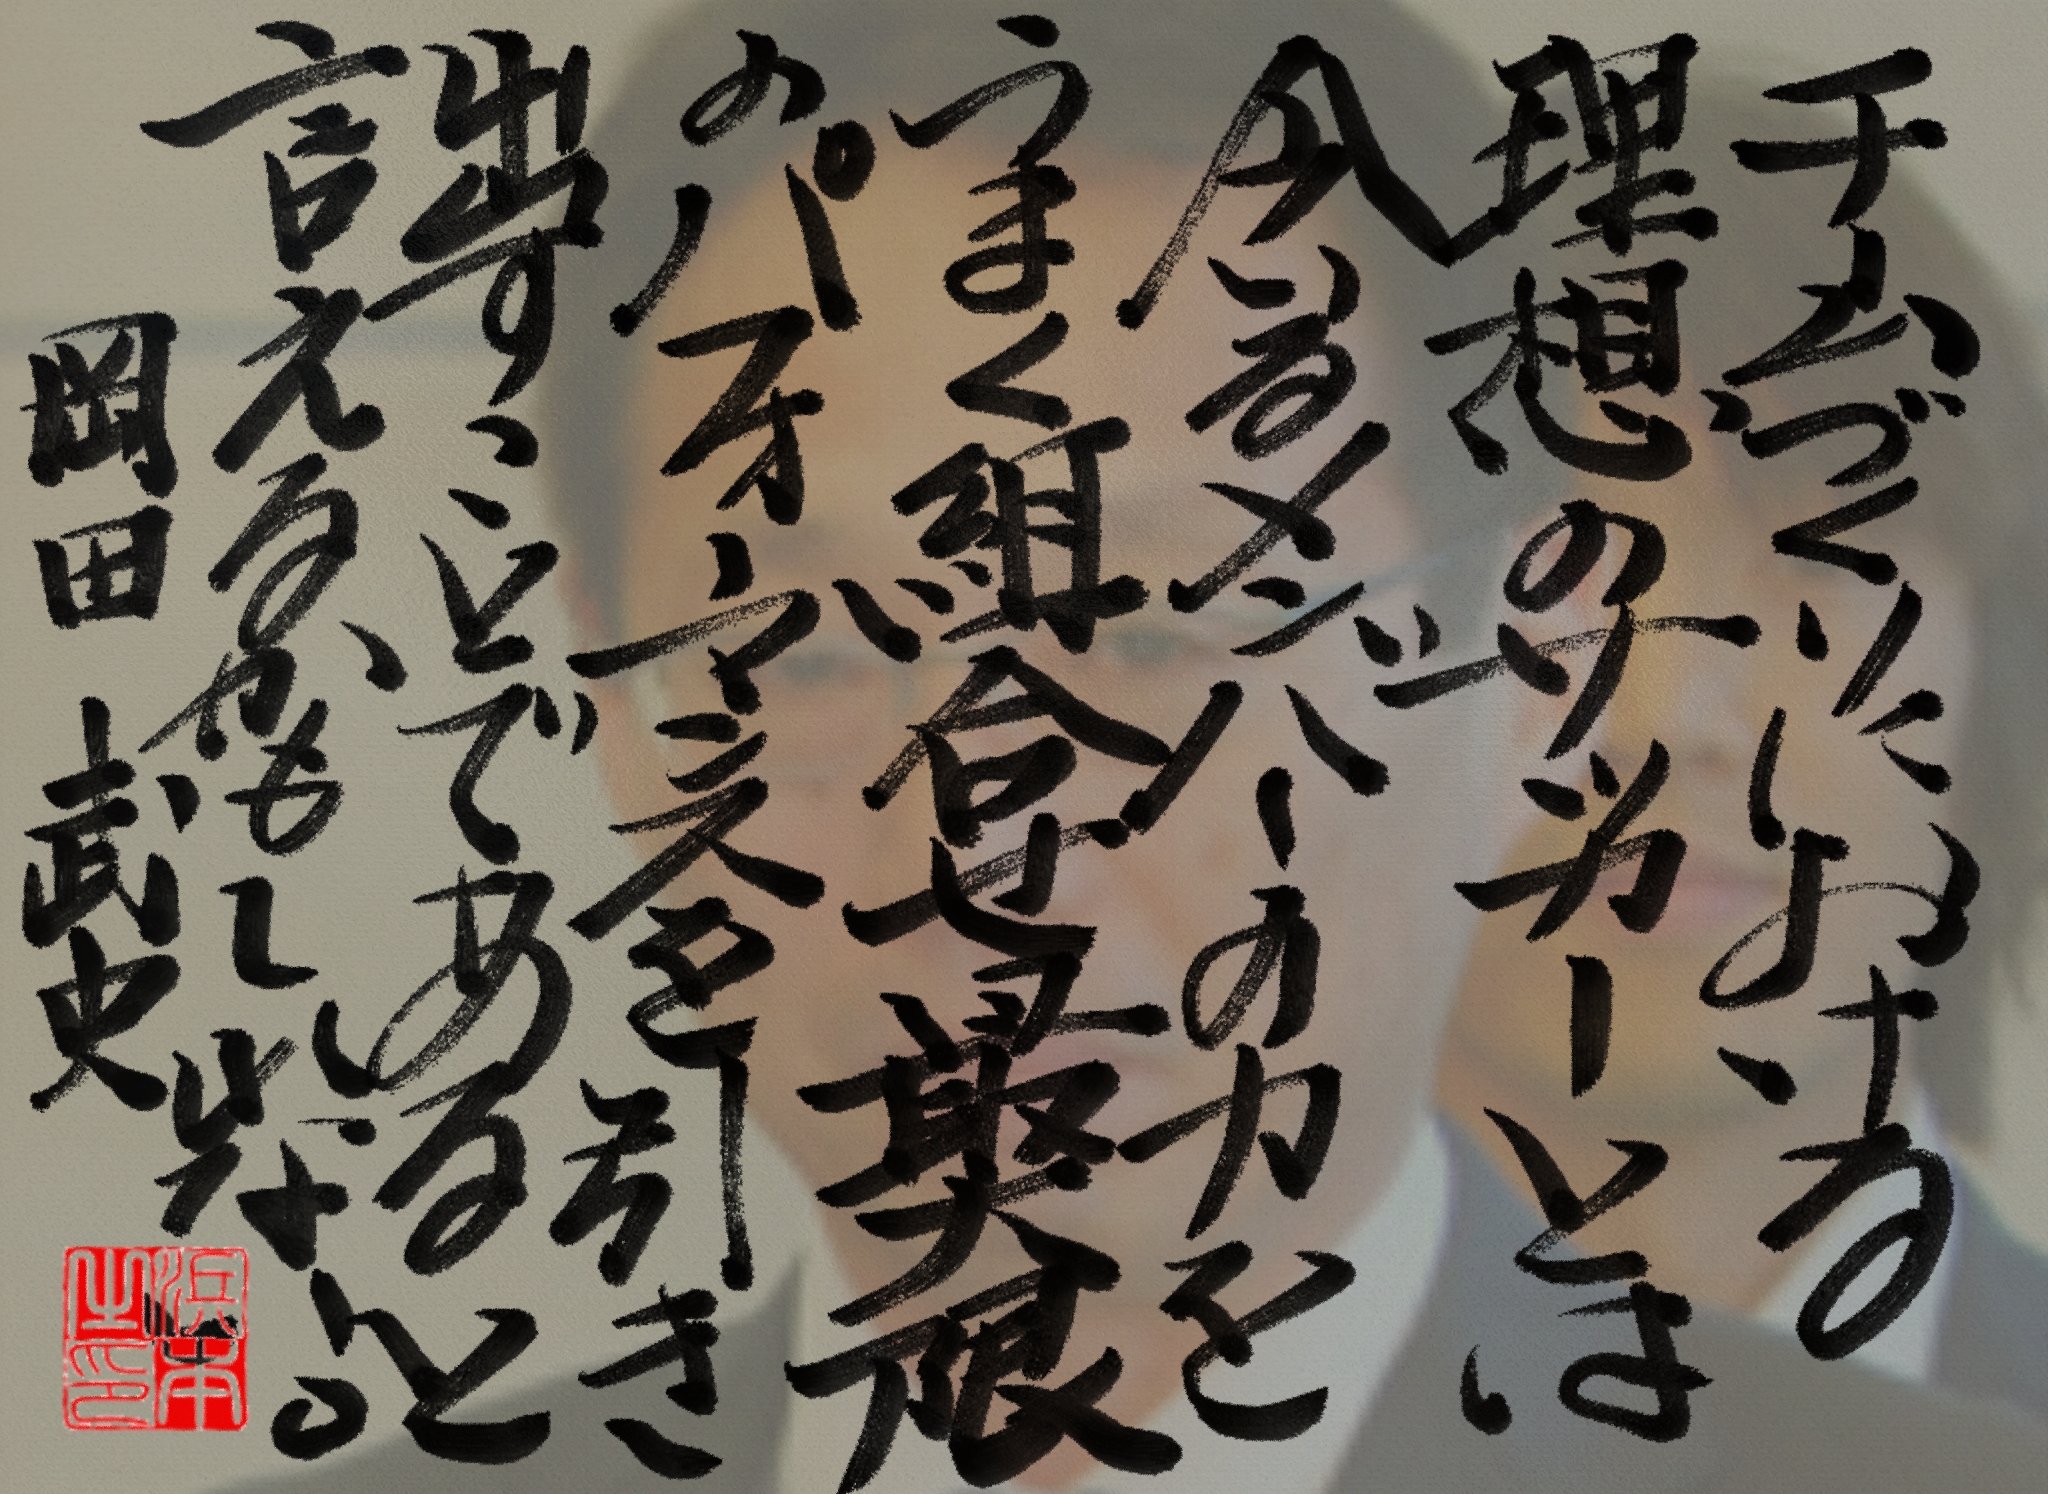 チームづくりにおける
理想のサッカーとは、
今いるメンバーの力を
うまく組合せ最大限
のパフォーマンスを引き
出すことであると
言えるかもしれない。
岡田 武史
浜本之印